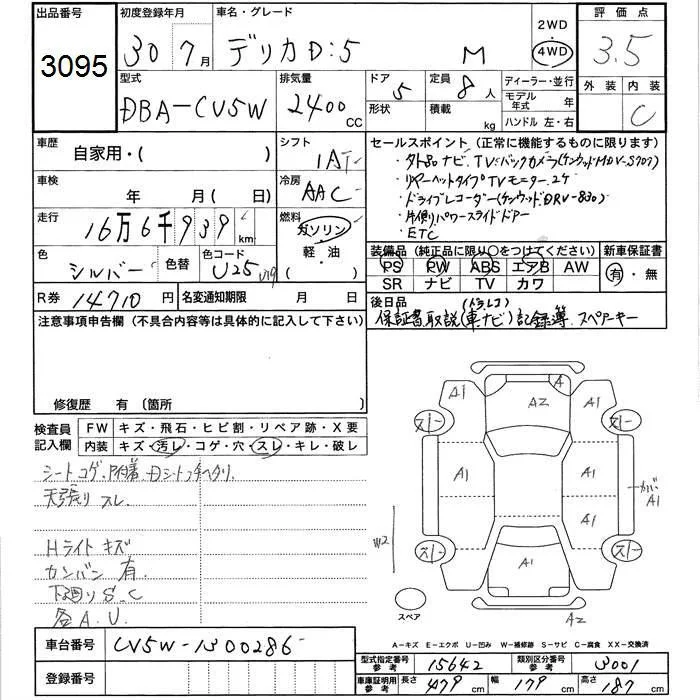 出品番号
3095
初度登録年月
30 7月
車名・グレード
デリカD:5 M
2WD
4WD
評価点
3.5
外装 内装
C
型式
DBA-CV5W
排気量
2400 CC
ドア
5
形状
定員
8人
積載
kg
ディーラー・並行
モデル年式 年
ハンドル 左・右
車歴
自家用・( )
シフト
IAT
車検
年 月( 日)
冷房
AAC
走行
16万6千939km
燃料
ガソリン
軽・油
色
シルバー
色替
色コード
U25
R券 14710円
名変通知期限 月 日
セールスポイント (正常に機能するものに限ります)
・外品ナビ、TV、バックカメラ(ケンウッドMDV-S707)
・リヤーヘットタイプTVモニター2ケ
・ドライブレコーダー(ケンウッドDRV-830)
・片側パワースライドドアー
・ETC
装備品 (純正品に限り○をつけてください)
新車保証書
PS PW ABS エアB AW
SR ナビ TV カワ
有・無
後日品
(ドラレコ)
保証書取説(車ナビ)記録簿 スペアーキー
注意事項申告欄 (不具合内容等は具体的に記入して下さい)
修復歴 有 (箇所
検査員記入欄
FW キズ・飛石・ヒビ割・リペア跡・X要
内装 キズ・汚レ・コゲ・穴・スレ・キレ・破レ
天張り スレ
Hライト キズ
カンバン 有
下回り S.C
各A.U
A2
A
A1
A1
A1
A1
A1
A1
カバーA1
W2
A2
スペア
車台番号 CV5W-1300286
登録番号
A-キズ E-エクボ U-凹み W-補修跡 S-サビ C-腐食 XX-交換済
型式指定番号 参考 15642
類別区分番号 参考 3001
車庫証明用 参考 長さ 479cm 幅 179cm 高さ 187cm